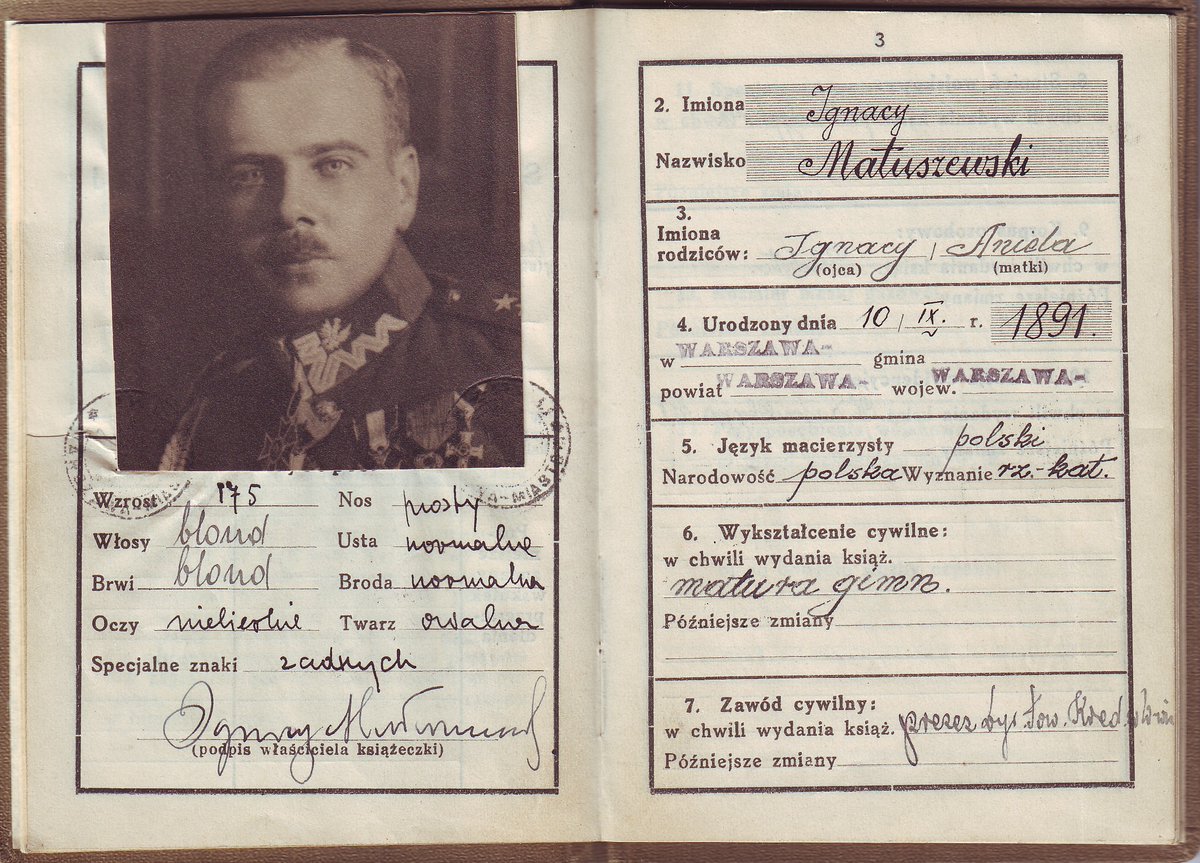 Wzrost 175 Nos prosty
Włosy blond Usta normalne
Brwi blond Broda normalna
Oczy niebieskie Twarz owalna
Specjalne znaki żadnych
Ignacy
(podpis właściciela książeczki)
3
2. Imiona Ignacy
Nazwisko Matuszewski
3.
Imiona
rodziców: Ignacy, Aniela
(ojca) (matki)
4. Urodzony dnia 10 IX. r. 1891.
w WARSZAWA- gmina
powiat WARSZAWA- wojew. WARSZAWA-
5. Język macierzysty polski
Narodowość polska Wyznanie rz.-kat.
6. Wykształcenie cywilne:
w chwili wydania książ.
matura gimn.
Późniejsze zmiany
7. Zawód cywilny:
w chwili wydania książ. prezes Tow. Kred.
Późniejsze zmiany